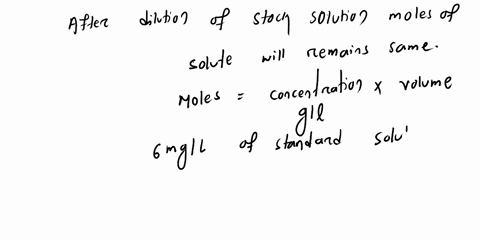 After dilution of stock solution moles of
solute will remains same.
Moles = concentration x volume
g/l
6mg/L of standard solu'